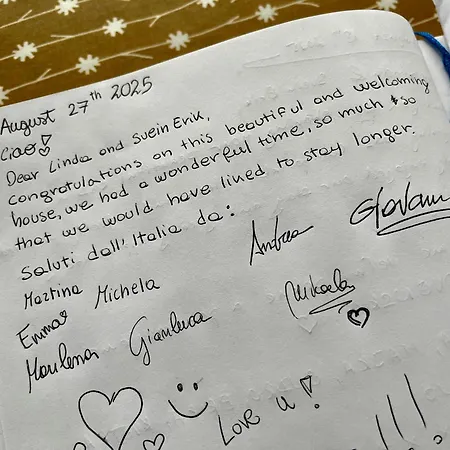 August 27th 2025
Ciao!
Dear Linda and Svein Erik,
congratulations on this beautiful and welcoming
house, we had a wonderful time, so much so
that we would have liked to stay longer.
Saluti dall'Italia da:
Andrea Giovanni
Martina Michela
Emma Mikaela
Marilena Gianluca
Love u!
!!!